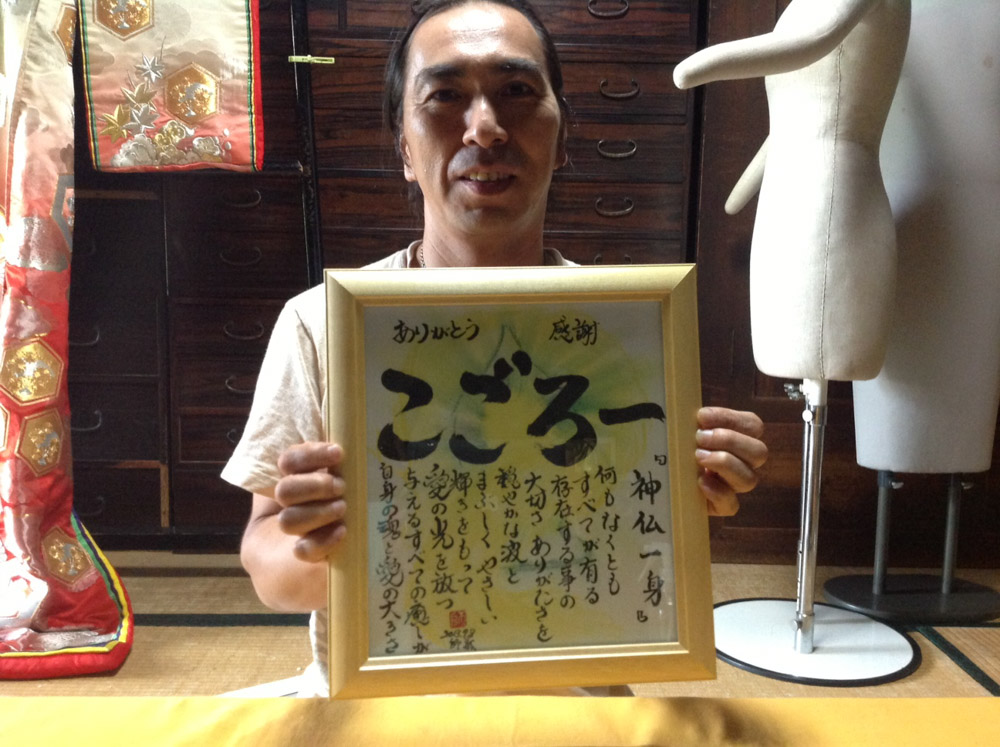 ありがとう 感謝
こごろー
『神仏一身』
何もなくとも
すべてが有る
存在する事の
大切さ ありがたさを
穏やかな波と
まぶしく やさしい
輝きをもって
愛の光を放つ
与えるすべての癒しが
自身の魂と愛の大きさ